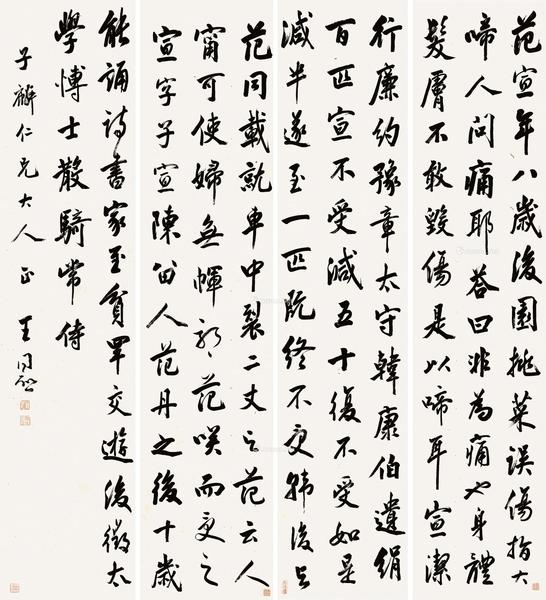 范宣年八歲後園挑菜誤傷指大
啼人問痛耶答曰非為痛也身體
髮膚不敢毀傷是以啼耳宣潔
行廉約豫章太守韓康伯遺絹
百匹宣不受減五十復不受如是
減半遂至一匹既終不受韓後與
范同載就車中裂二丈與范云人
甯可使婦無幝耶范咲而受之
宣字子宣陳留人范丹之後十歲
能誦詩書家至貧罕交遊後徵太
學博士散騎常侍
子麟仁兄大人正 王同愈